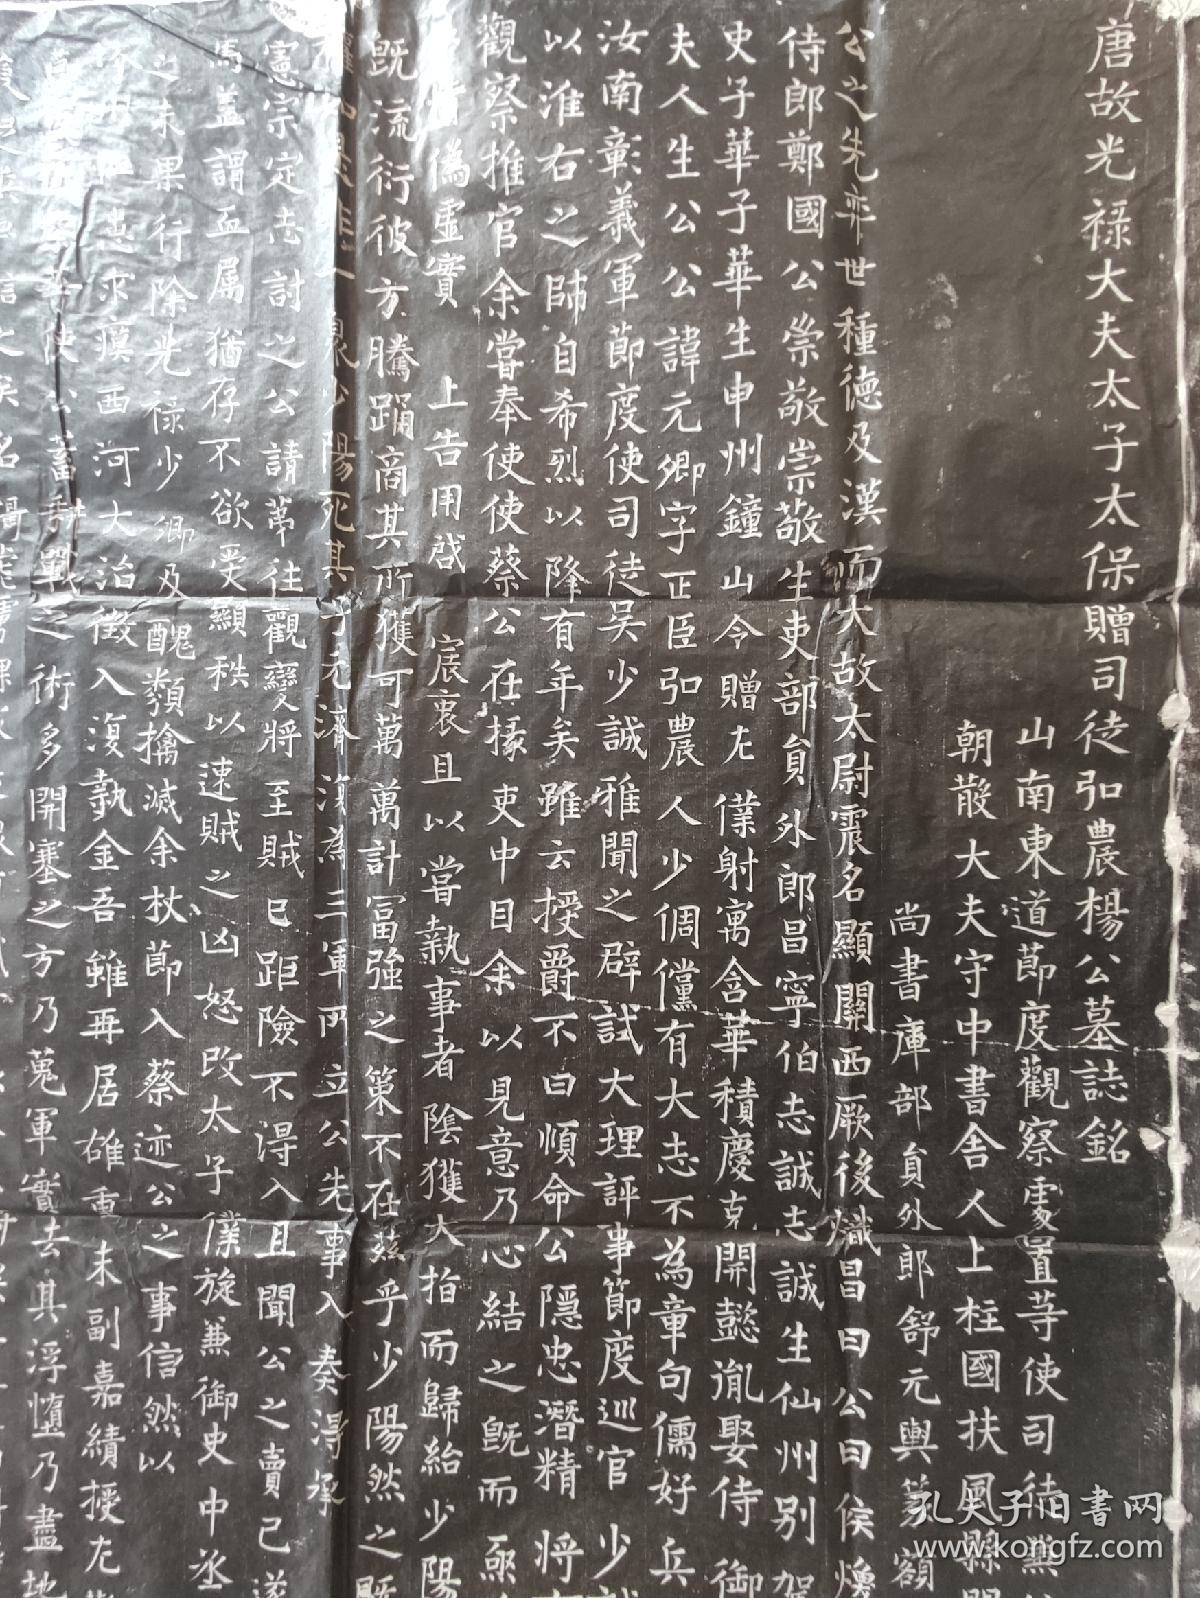 唐故光禄大夫太子太保贈司徒弘農楊公墓誌銘
山南東道節度觀察處置等使司徒兼
朝散大夫守中書舍人上柱國扶風縣開
尚書庫部員外郎舒元輿篆額
公之先弈世種德及漢而大故太尉震名顯關西厥後熾昌曰公曰侯
侍郎鄭國公崇敬崇敬生吏部員外郎昌寧伯志誠志誠生仙州別駕
史子華子華生申州鐘山令贈左僕射寓含華積慶克開懿胤娶侍御
夫人生公公諱元卿字正臣弘農人少倜儻有大志不為章句儒好兵
汝南彰義軍節度使司徒吴少誠雅聞之辟試大理評事節度巡官少誠
以淮右之師自希烈以降有年矣雖云授爵不曰順命公隱忠潛精將
觀察推官余嘗奉使使蔡公在掾吏中目余以見意乃心結之既而亟
情偽虛實 上告用啟 宸衷且以嘗執事者陰獲大指而歸紿少陽
既流衍彼方騰踊商其所獲可萬萬計冨強之第不在茲乎少陽然之既
泉少陽死其子元濟復為三軍所立公先事入奏得承
憲宗定志討之公請苐往觀變將至賊已距險不得入且聞公之賣己遂
馬蓋謂孟属猶存不欲受顯秩以速賊之凶怒改太子僕旋兼御史中丞
之未果行除光禄少卿及醜類擒滅余杖節入蔡迹公之事信然以
恚求瘼西河大治徵入復執金吾雖再居雄重未副嘉績授左
使公蓄耕戰之術多開塞之方乃蒐軍實去其浮惰乃盡地
孔夫子旧书网
www.kongfz.com